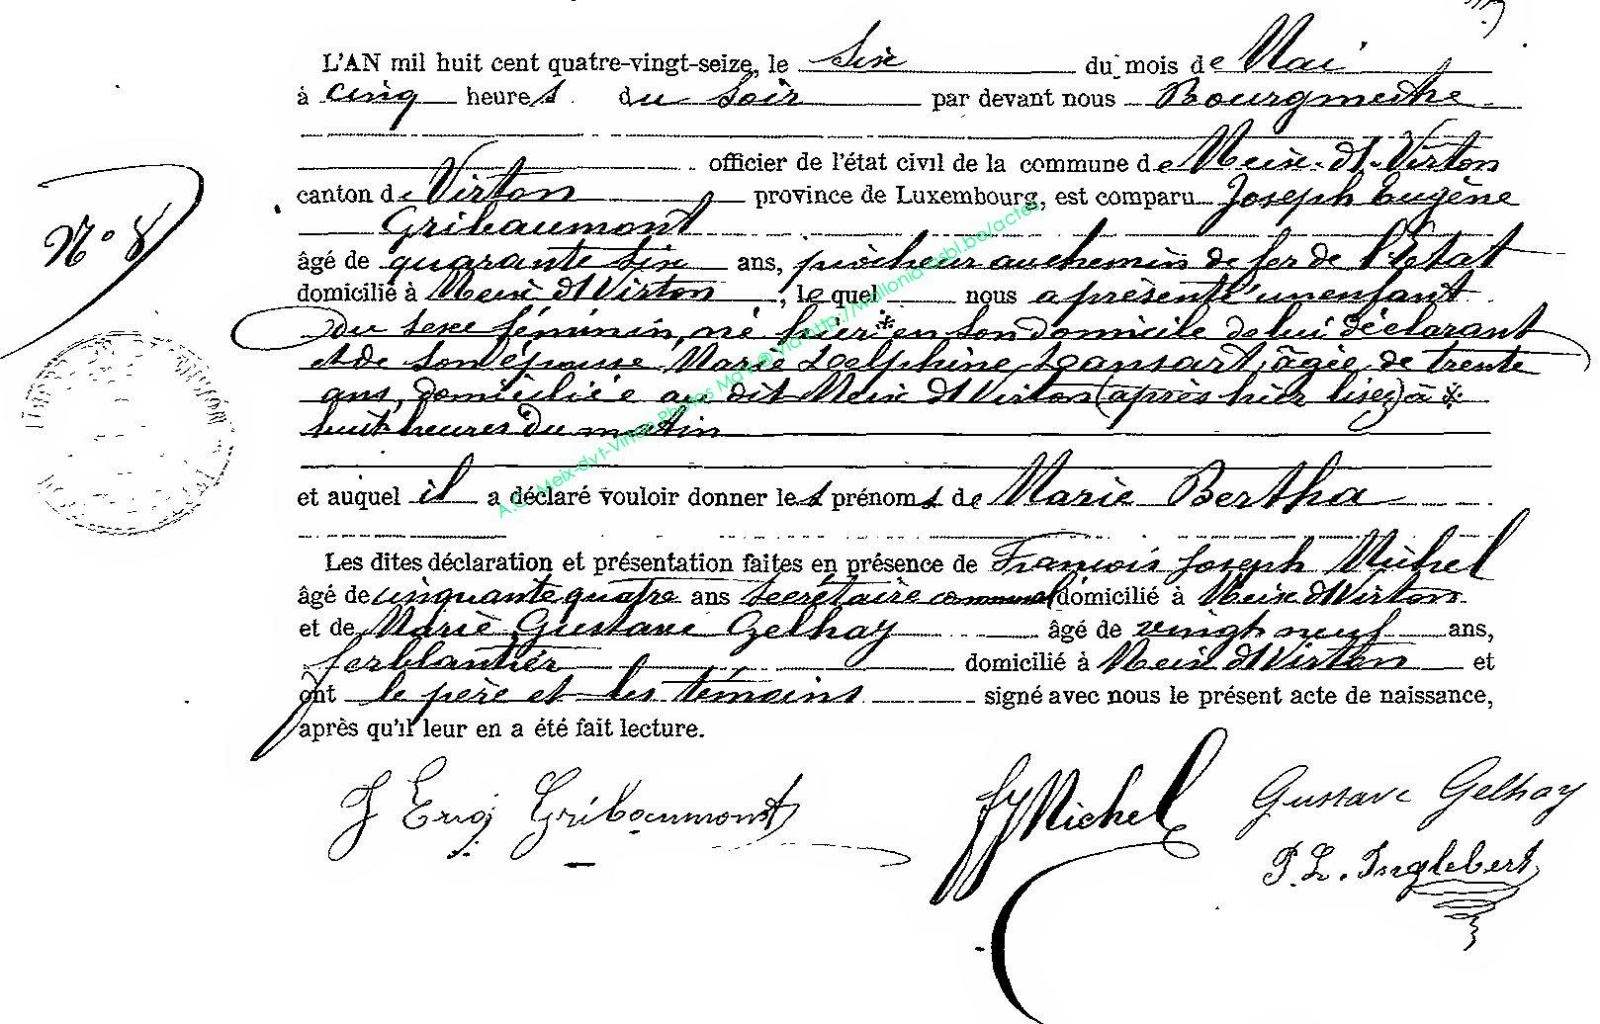 L'AN mil huit cent quatre-vingt-seize, le Six du mois de Mai
à cinq heures du soir par devant nous Bourgmestre
officier de l'état civil de la commune de Meix-dt-Virton
canton de Virton province de Luxembourg, est comparu Joseph Eugène
Gribaumont
N° 8
âgé de quarante six ans, piocheur au chemin de fer de l'État
domicilié à Meix dt Virton, lequel nous a présenté un enfant
du sexe féminin, né hier * en son domicile de lui déclarant
et de son épouse Marie Delphine Dansart, âgée de trente
ans, domiciliée au dit Meix dt Virton (après hier lisez) à *
huit heures du matin
et auquel il a déclaré vouloir donner les prénoms de Marie Bertha
Les dites déclaration et présentation faites en présence de François Joseph Michel
âgé de cinquante quatre ans Secrétaire communal domicilié à Meix dt Virton
et de Marie Gustave Gelhay âgé de vingt neuf ans,
ferblantier domicilié à Meix dt Virton et
ont le père et les témoins signé avec nous le présent acte de naissance,
après qu'il leur en a été fait lecture.
J Eug Gribaumont
FJ Michel
Gustave Gelhay
P. L. Inglebert